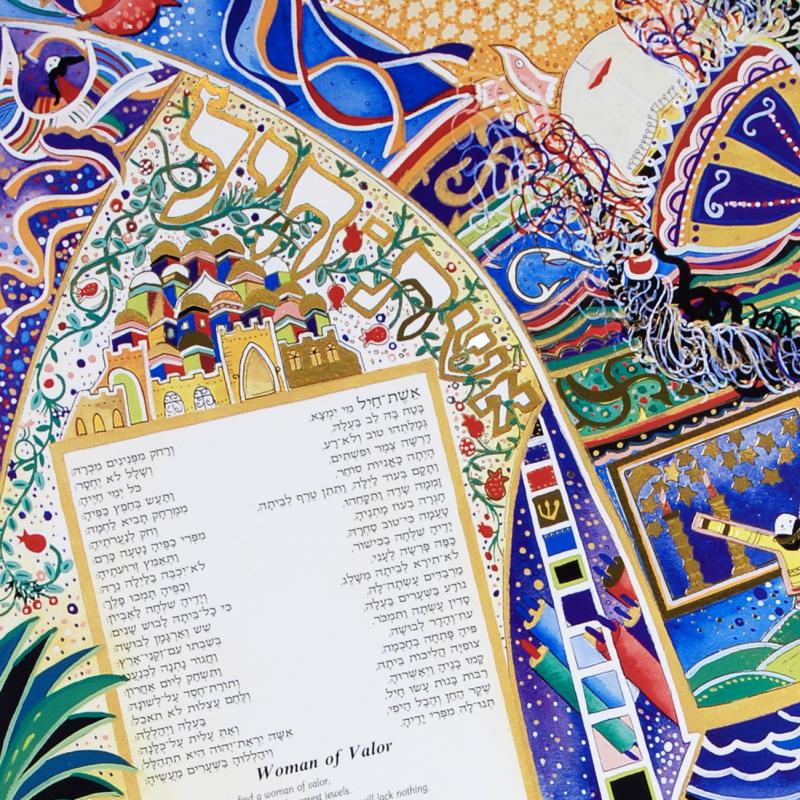 אשת חיל
אשת־חיל מי ימצא, ורחק מפנינים מכרה:
בטח בה לב בעלה, ושלל לא יחסר:
גמלתהו טוב ולא־רע, כל ימי חייה:
דרשה צמר ופשתים, ותעש בחפץ כפיה:
היתה כאניות סוחר, ממרחק תביא לחמה:
ותקם בעוד לילה, ותתן טרף לביתה, וחק לנערתיה:
זממה שדה ותקחהו, מפרי כפיה נטעה כרם:
חגרה בעוז מתניה, ותאמץ זרועתיה:
טעמה כי־טוב סחרה, לא־יכבה בלילה נרה:
ידיה שלחה בכישור, וכפיה תמכו פלך:
כפה פרשה לעני, וידיה שלחה לאביון:
לא־תירא לביתה משלג, כי כל־ביתה לבוש שנים:
מרבדים עשתה־לה, שש וארגמן לבושה:
נודע בשערים בעלה, בשבתו עם־זקני־ארץ:
סדין עשתה ותמכר, וחגור נתנה לכנעני:
עוז־והדר לבושה, ותשחק ליום אחרון:
פיה פתחה בחכמה, ותורת־חסד על־לשונה:
צופיה הליכות ביתה, ולחם עצלות לא תאכל:
קמו בניה ויאשרוה, בעלה ויהללה:
רבות בנות עשו חיל, ואת עלית על־כלנה:
שקר החן והבל היופי, אשה יראת־יהוה היא תתהלל:
תנו־לה מפרי ידיה, ויהללוה בשערים מעשיה:
Woman of Valor
find a woman of valor,
rarest jewels.
will lack nothing.